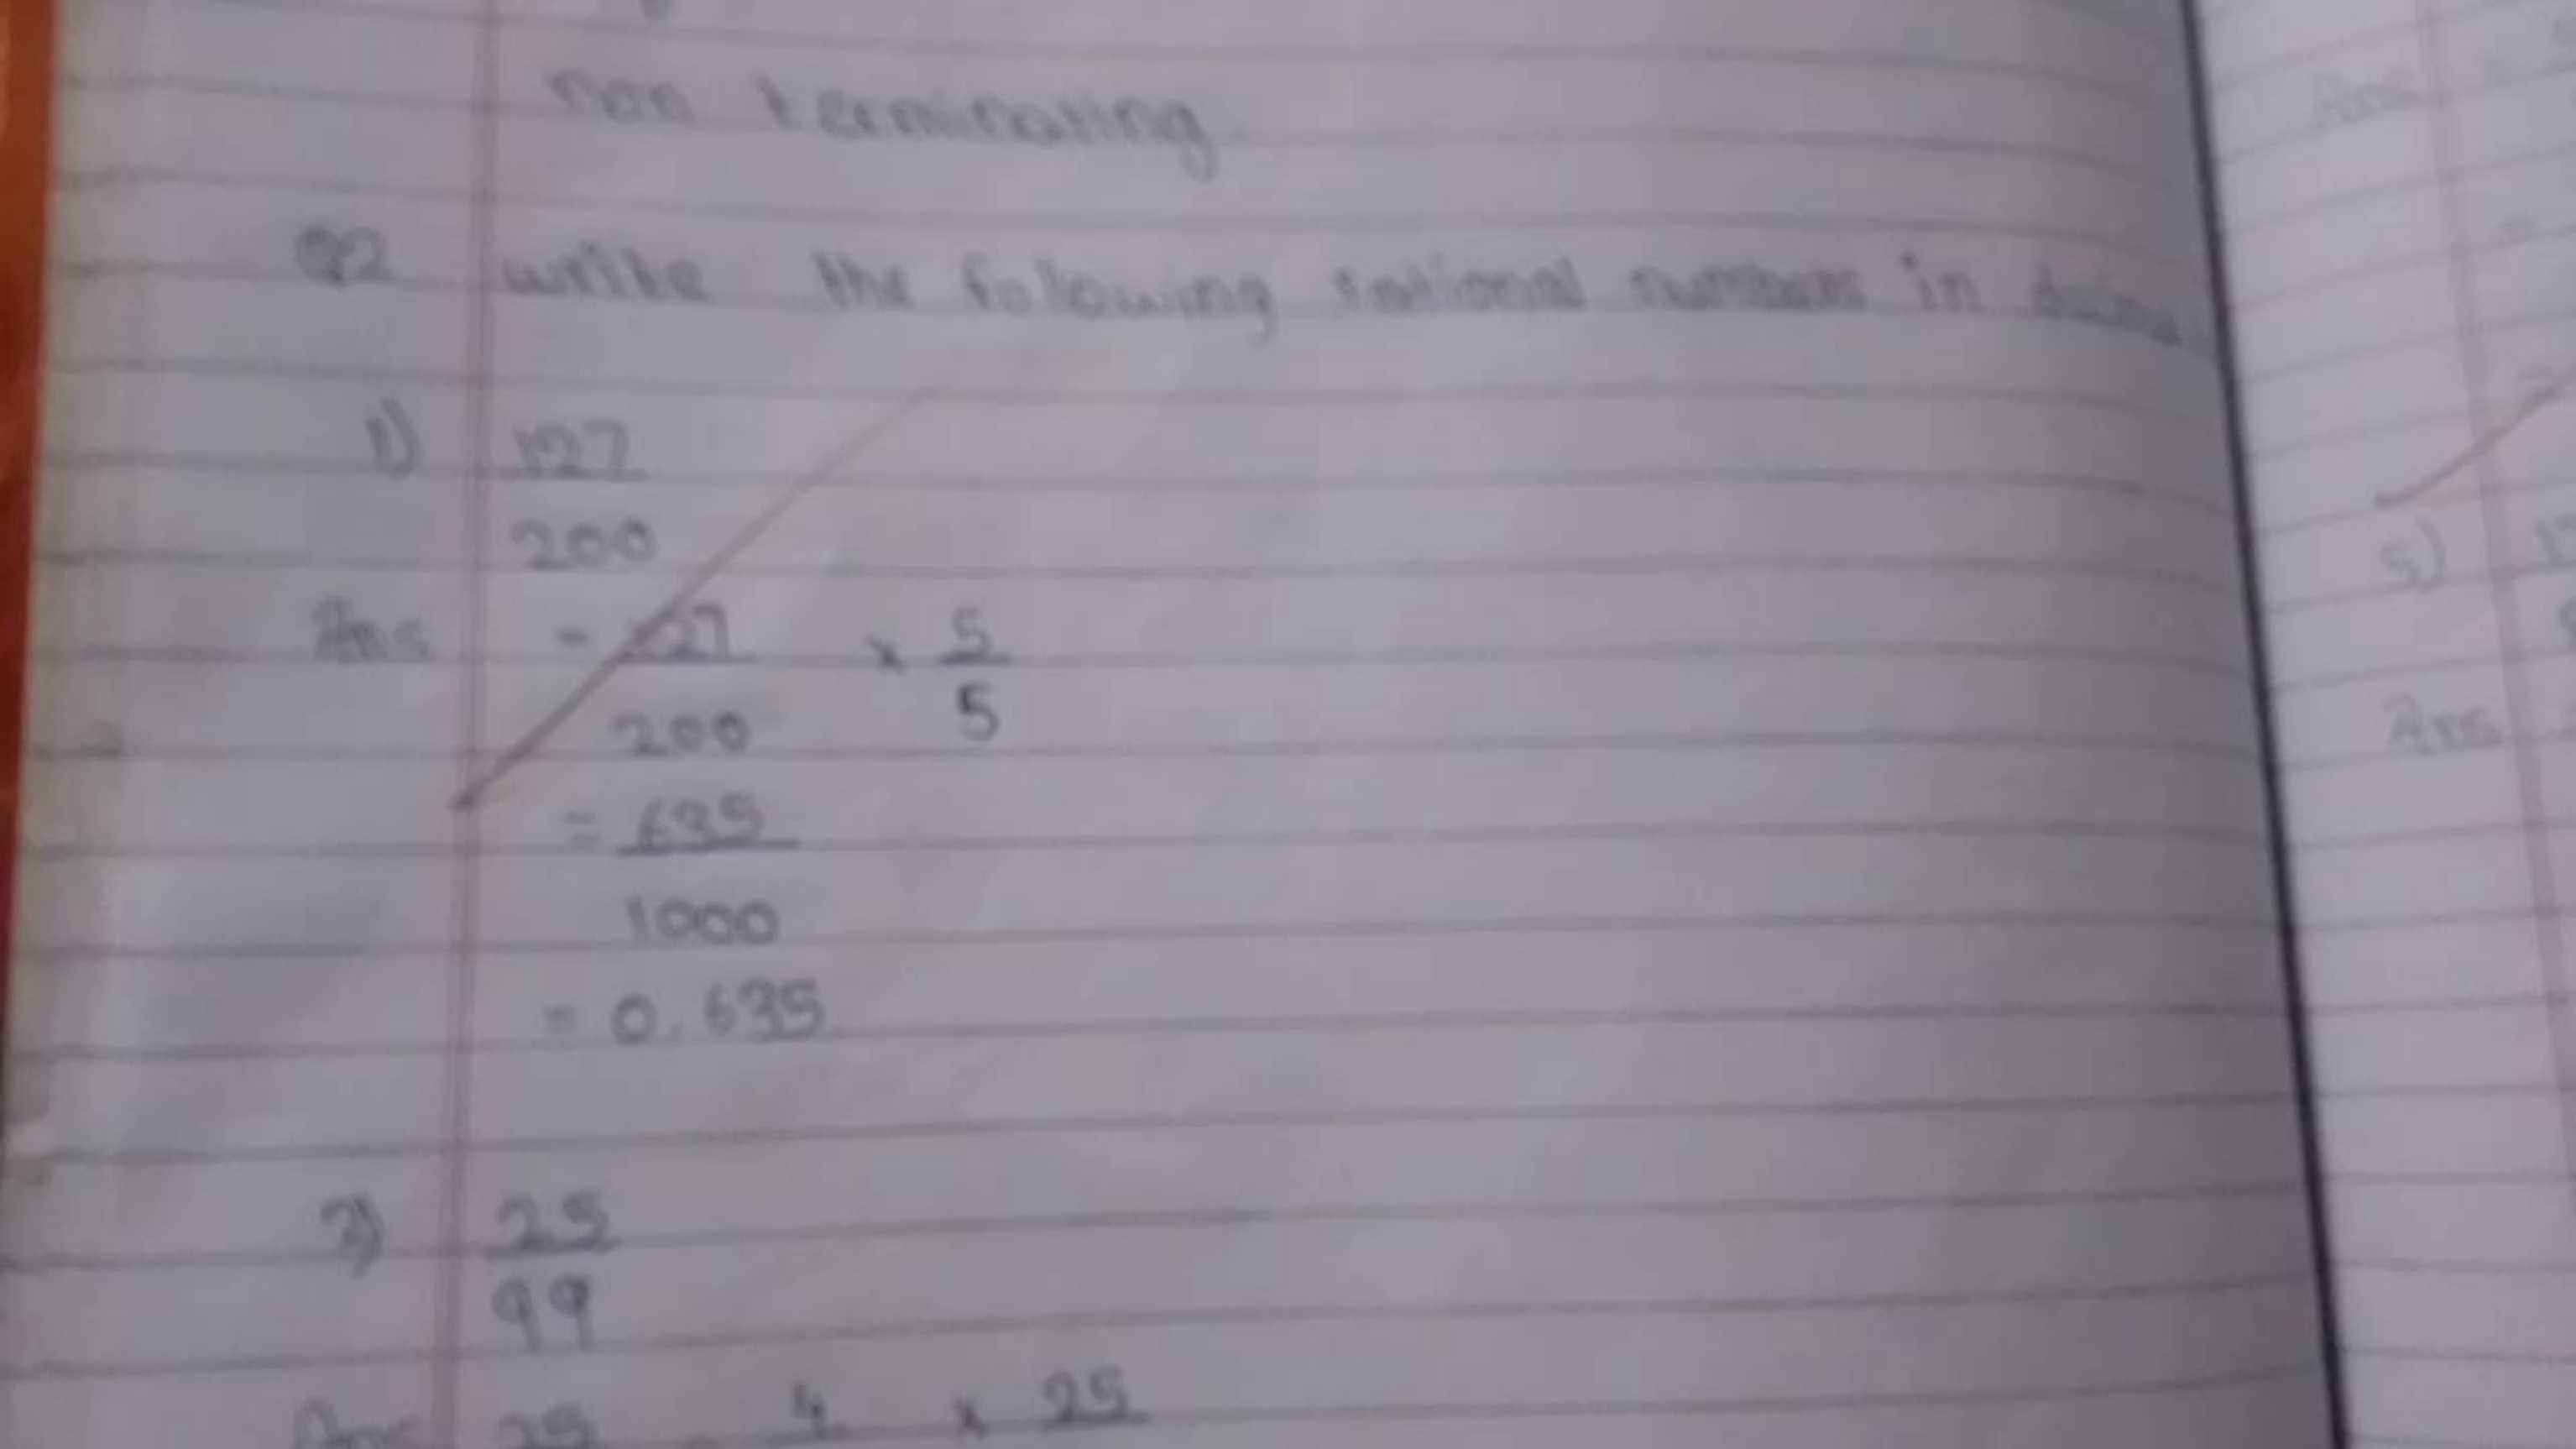 non terminating
Q2 write the following rational numbers in
1) 127
200
Ans = 127 × 5
200 5
= 635
1000
= 0.635
2) 25
99
Ans 25 4 × 25
Ans
5)
Ans